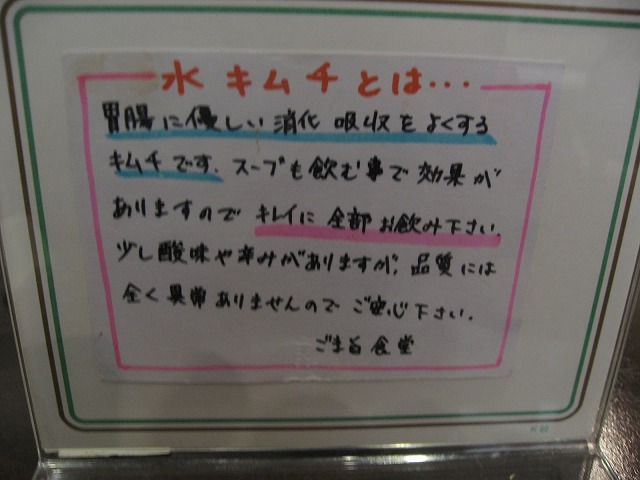 水キムチとは・・・
胃腸に優しい消化吸収をよくする
キムチです。スープも飲む事で効果が
ありますのでキレイに全部お飲み下さい。
少し酸味や辛みがありますが、品質には
全く異常ありませんのでご安心下さい。
ごま旨食堂